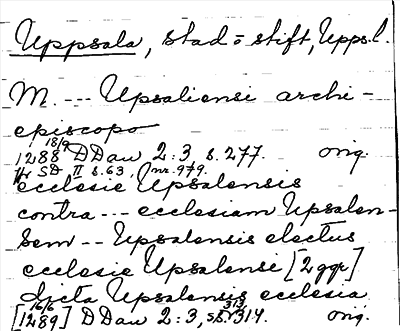 Uppsala, stad o stift, Uppl.
M. --- Upsaliensi archi-
episcopo
18/9
1288 DDan 2:3, s. 277. orig.
Tr SD II s. 63, nr. 979.
ecclesie Upsalensis
contra --- ecclesiam Upsalen-
sem -- Upsalensis electus
ecclesie Upsalensi [2 ggr]
dicta Upsalensis ecclesia
16/6
[1289] DDan 2:3, s. 313, 314. orig.